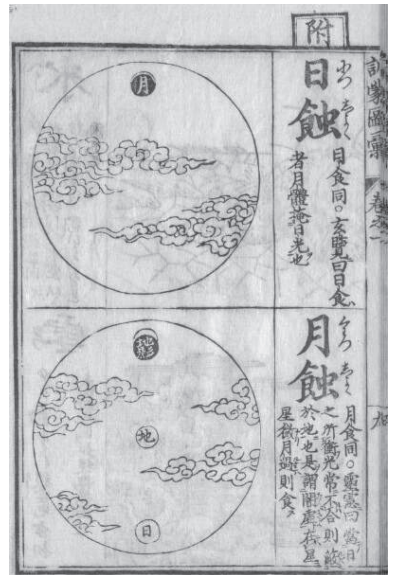 訓蒙圖彙 卷之一
附
日蝕
日食同○玄覽曰日食
者月體掩日光也
月
月蝕
月食同○靈憲曰當日
之所衝光常不合則蔽
於地也是謂闇虛在星
星微月過則食
地
日